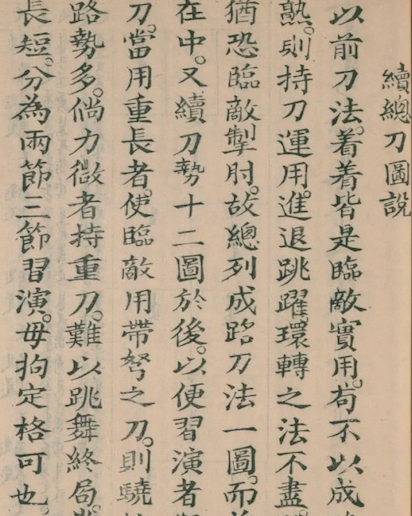 續總刀圖說
以前刀法。着着皆是臨敵實用。苟不以成
熟。則持刀運用。進退跳躍。環轉之法不盡。
猶恐臨敵掣肘。故總列成路刀法一圖。而
在中。又續刀勢十二圖於後。以便習演者
刀。當用重長者。使臨敵用帶弩之刀。則驍
路勢多。倘力微者持重刀。難以跳舞終局。
長短。分為兩節三節習演。毋拘定格可也。